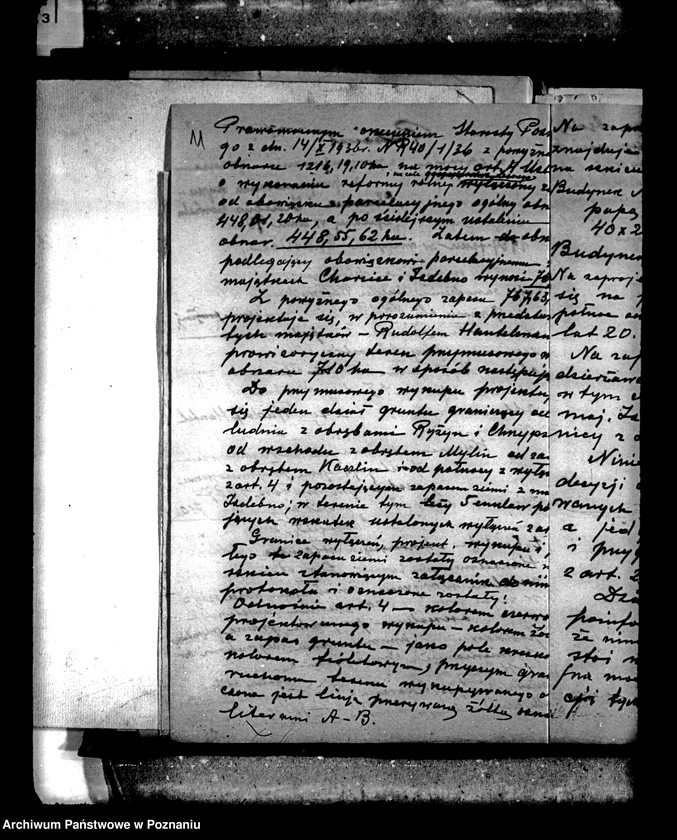 3
11
Prawomocnym orzeczeniem Starosty Poz
go z dn. 14/X 1936r. NR 40/1/36 z powyższ
obszaru 1216,19,10 ha na mocy art. 4 Ust
o wykonaniu reformy rolnej wyłączony z
od obowiązku parcelacyjnego ogólny obs
448,01,20 ha, a po ściślejszym ustaleniu
obszar 448,55,62 ha. Zatem do obs
podlegający obowiązkowi parcelacyjnemu
majątkach Charcice i Izdebno wynosi 76
Z powyższego ogólnego zapasu 767,63,
projektuje się, w porozumieniu z przedsta
tych majątków – Rudolfem
prowizoryczny teren przymusowego w
obszaru 710 ha w sposób następuj
Do przymusowego wykupu projektu
się jeden dział gruntu graniczący od
ludnia z obrębami Ryżyn i Chrzyps
od wschodu z obrębem Mylin od za
z obrębem Kaczlin i od północy z wyłą
z art. 4 i pozostającym zapasem ziemi z m
Izdebno; w terenie tym leży 5 enklaw po
jących wskutek ustalonych wyłączeń z
Granice wyłączeń, projekt. wykupu i
łego te zapasu ziemi zostały oznaczone n
szkicu stanowiącym załącznik do nin
protokołu i oznaczone zostały:
Odnośnie art. 4 – kolorem czerwo
projektowanego wykupu – kolorem żół
a zapas gruntu – jako pole
kolorem fioletowym, przyczym gra
ruchoma terenu wykupywanego o
czona jest linją przerywaną żółtą ozna
literami A–B.
Na zapa
znajduje
na szkicu
Budynek N
papą
40 x 2
Budynek
Na zaproje
się na
północ od
lat 20.
Na zap
dzierżawa
w tym
maj. Iz
nicy z
Ninie
decyzji
wanych
a jed
i przy
z art. 2
Dzia
poinfo
że nin
stoi n
na mo
cji tych
Archiwum Państwowe w Poznaniu